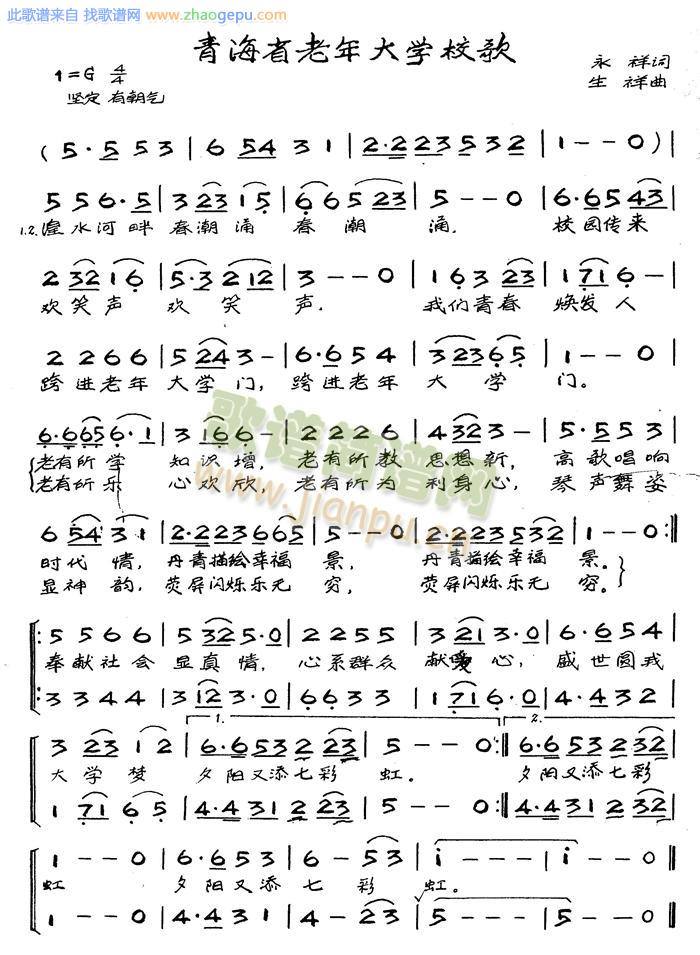 此歌谱来自 找歌谱网
www.zhaogepu.com
青海省老年大学校歌
1=G 4/4
永祥词
坚定 有朝气
生祥曲
( 5·5 5 3 | 6 54 3 1 | 2·2 2 3 5 3 2 | 1 - - 0 ) |
5 5 6·5 | 3 23 1 5 | 6 6 5 23 | 5 - - 0 | 6·6 5 43 |
1.2.湟水河畔 春潮涌 春潮 涌. 校园传来
2 32 1 6 | 5·3 2 12 | 3 - - 0 | 1 6 3 23 | 1 71 6 - |
欢笑声 欢笑 声. 我们青春 焕发人
2 2 6 6 | 5 24 3 - | 6·6 5 4 | 3 23 6 5 | 1 - - 0 |
跨进老年 大学门, 跨进老年 大学 门.
6·6 65 6·1 | 3 16 6 - | 2 2 2 6 | 4 32 3 - | 5·5 5 3 |
老有所学 知识增, 老有所教 思想新, 高歌唱响
老有所乐 心欢欣, 老有所为 利身心, 琴声舞姿
6 54 3 1 | 2·2 2 3 6 6 5 | 5 - - 0 | 2·2 2 3 5 3 2 | 1 - - 0 :||
时代情, 丹青描绘幸福 景, 丹青描绘幸福 景。
显神韵, 荧屏闪烁乐无 穷, 荧屏闪烁乐无 穷。
5 5 6 6 | 5 32 5·0 | 2 2 5 5 | 3 21 3·0 | 6·6 5 4 |
奉献社会 显真情, 心系群众 献爱心, 盛世圆我
3 3 4 4 | 3 12 3·0 | 6 6 3 3 | 1 71 6·0 | 4·4 3 2 |
1. 2.
3 23 1 2 | 6·6 5 3 2 23 | 5 - - 0 :|| 6·6 5 3 2 32 |
大学梦 夕阳又添七彩 虹. 夕阳又添七彩
1 71 6 5 | 4·4 3 1 2 23 | 5 - - 0 :|| 4·4 3 1 2 32 |
1 - - 0 | 6·6 5 3 | 6 - 5 3 | i - - - | i - - 0 ||
虹 夕阳又添 七 彩 虹。
1 - - 0 | 4·4 3 1 | 4 - 2 3 | 5 - - - | 5 - - 0 ||
歌谱简谱网
www.jianpu.cn